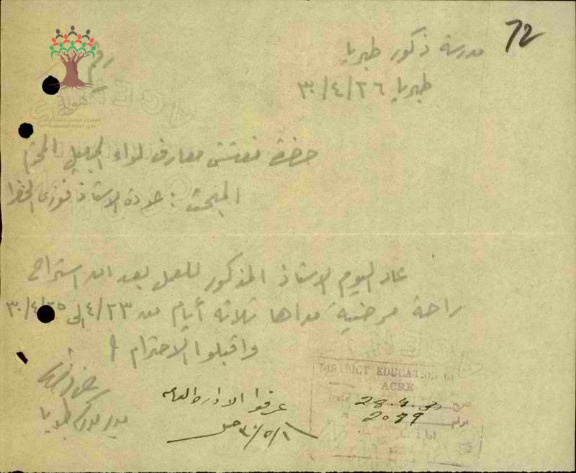 72
مدرسة ذكور طبريا
رقم
طبريا ٢٦/٤/٣٠
حضرة مفتش معارف لواء الجليل المحترم
المبحث: عودة الاستاذ فوزي
عاد اليوم الاستاذ المذكور للعمل بعد ان استراح
راحة مرضية مداها ثلاثة أيام من ٢٣/٤ الى ٢٥/٤/٣٠
واقبلوا الاحترام
DISTRICT EDUCATION
ACRE
28.4.30
2099
عرفوا الادارة العامه
١/٥/٣٠
مدير مدرسة طبريا